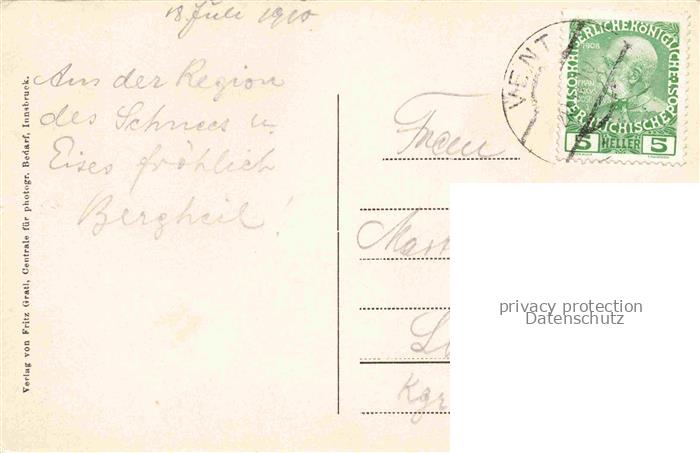 18. Juli 1910
Aus der Region
des Schnees u.
Eises fröhlich
Bergheil!
Verlag von Fritz Gratl, Centrale für photogr. Bedarf, Innsbruck.
VENT
KAISERLICHEKÖNIGLICHE
1908
ÖSTERREICHISCHE
5 HELLER 5
Frau
Kgr
privacy protection
Datenschutz